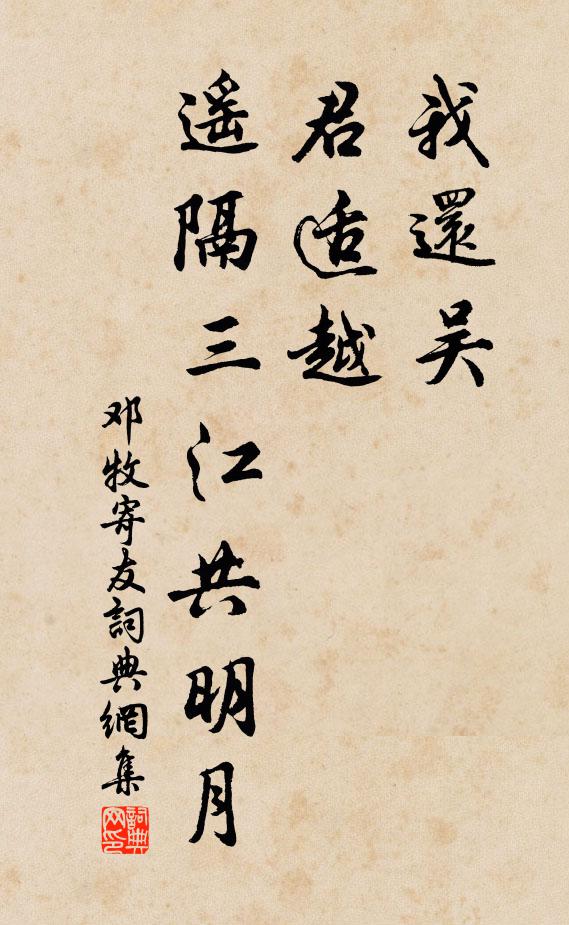 我還吴
君适越
遥隔三江共明月
邓牧寄友詞典網集
詞典网印